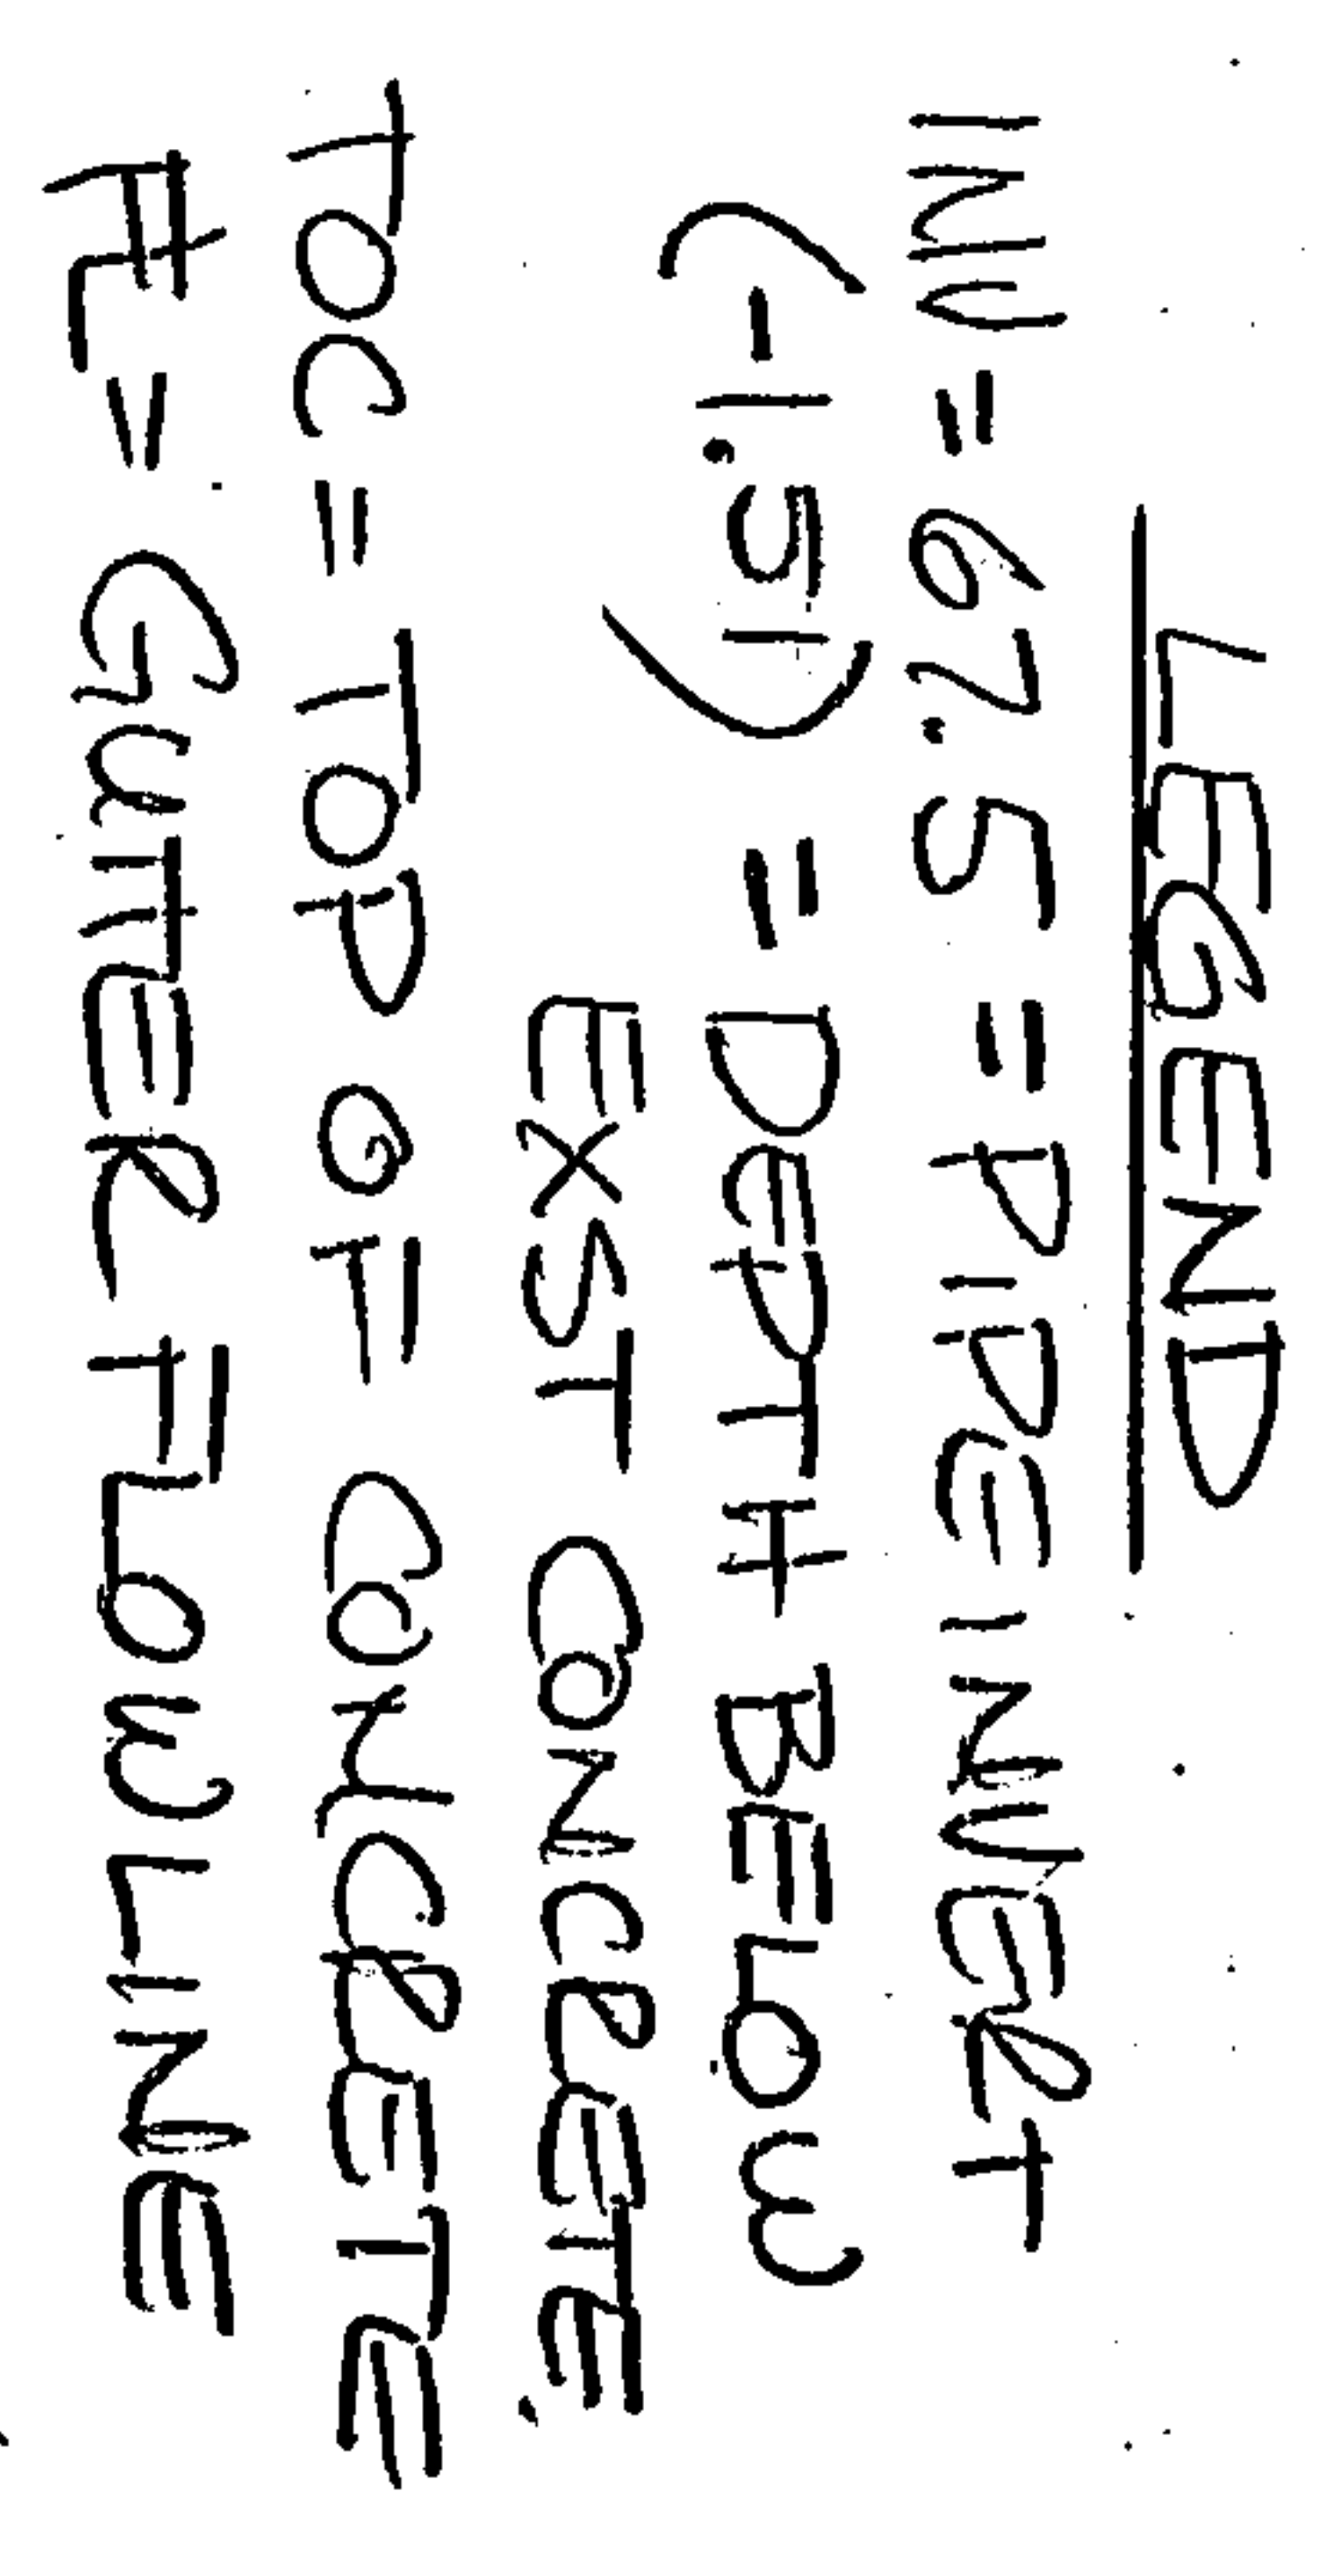 LEGEND
INV = 67.5 = PIPE INVERT
(-1.51) = DEPTH BELOW
EXST CONCRETE.
TOC = TOP OF CONCRETE
FL = GUTTER FLOWLINE